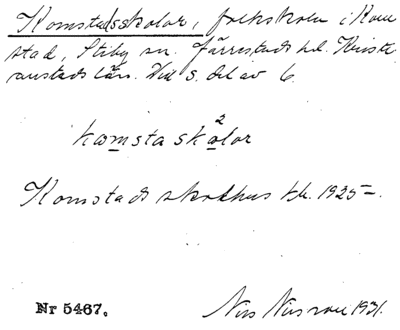 Komstadsskolor, folkskola i Kom
stad, Stiby sn. Järrestads hd. Kristi
anstads län. Vid s. del av 6.
komsta skolor
2
Komstads skolhus tbl. 1925–.
Nr 5467.
Nils Nilsson 1931.